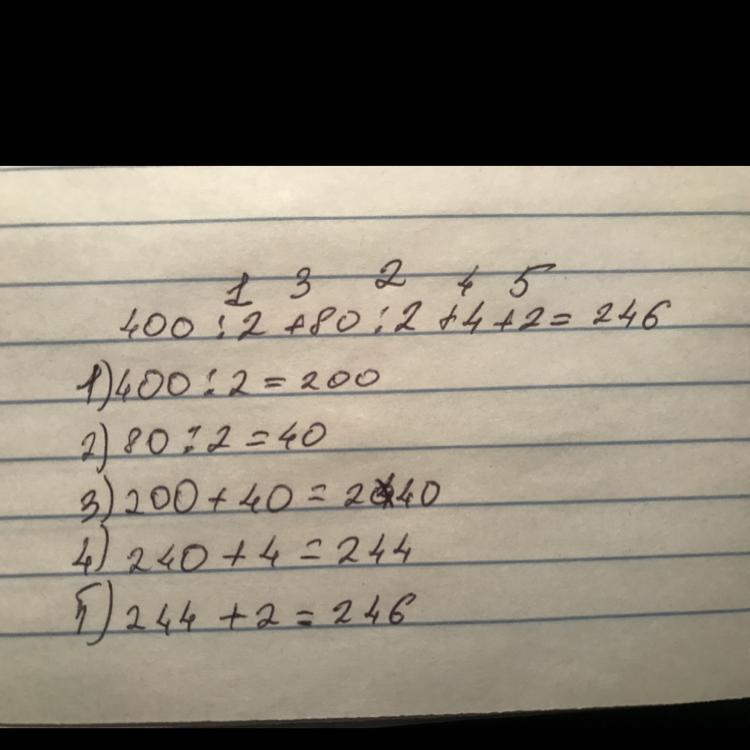 1 3 2 4 5
400 : 2 + 80 : 2 + 4 + 2 = 246
1) 400 : 2 = 200
2) 80 : 2 = 40
3) 200 + 40 = 240
4) 240 + 4 = 244
5) 244 + 2 = 246